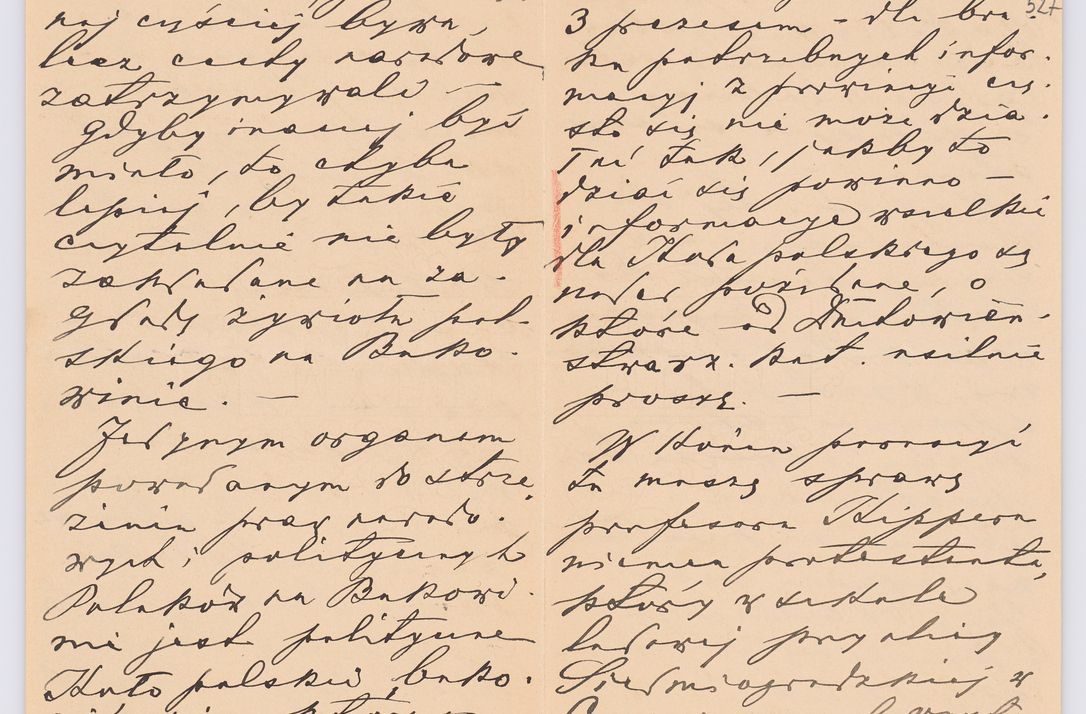 naj częściej bywa,
lecz cechy narodowe
zatrzymywali —
Gdyby inaczej być
miało, to chyba
lepiej, by takie
czytelnie nie były
zakładane na za-
gładę żywiołu pol-
skiego na Buko-
winie. —
Jedynym organem
powołanym do strze-
żenia praw narodo-
wych i politycznych
Polaków na Bukowi-
nie jest polityczne
Koło polskie, buko-
3 prezesem – dla bra-
ku potrzebnych infor-
macyj z prowincyi czę-
sto się nie może dzia-
tak, jakby to
dziać się powinno —
informacye wszelkie
dla Koła polskiego są
nader pożądane, o
które od Duchowień-
stwa rz. kat. usilnie
proszę. —
W końcu poruszyć
tu muszę sprawę
profesora Kippera
niemca protestanta,
który w szkole
ludowej przy ulicy
Siedmiogrodzkiej w
527